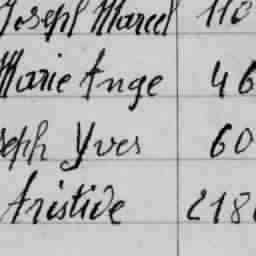 Joseph Marcel 110
Marie Ange 46
seph Yves 60
Aristide 218